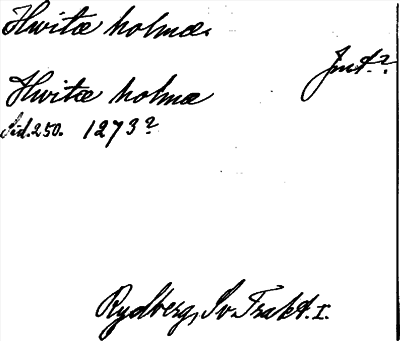 Hwitæ holmæ.
Jmt.?
Hwitæ holmæ
Sid. 250. 1273?
Rydberg, Sv. Trakt. I.